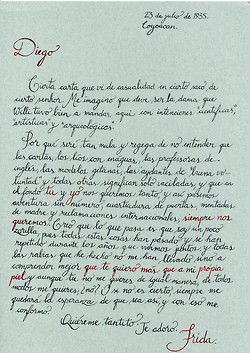 23 de julio de 1935.
Coyoacán.
Diego
Cierta carta que vi de casualidad en cierto saco de
cierto señor. Me imagino que deve ser la dama que
Willi tuvo bien a mandar aquí con intenciones "científicas",
"artísticas" y "arqueológicas".
Por qué seré tan mula y rejega de no entender que
las cartas, los líos con enaguas, las profesoras de
inglés, las modelos gitanas, las ayudantes de "buena vo-
luntad" y todas otras, significan sólo vaciladas y que en
el fondo tú y yo nos queremos tanto y así pasemos
aventura sin número, cuarteadura de puertas, mentadas
de madre y reclamaciones internacionales, siempre nos
queremos. Creo que lo que pasa es que soy un poco
zorilla, pues todas estas cosas han pasado y se han
repetido durante los años que vivimos juntos y todas
las rabias que he hecho no me han llevado sino a
comprender mejor que te quiero más que a mi propia
piel y aunque tú no me quieres de igual manera, de todos
modos me quieres ¿no? ¿Y si no es cierto, siempre me
quedará la esperanza de que sea así, y con eso me
conformo.
Quiéreme tantito.
Te adoro.
Frida.